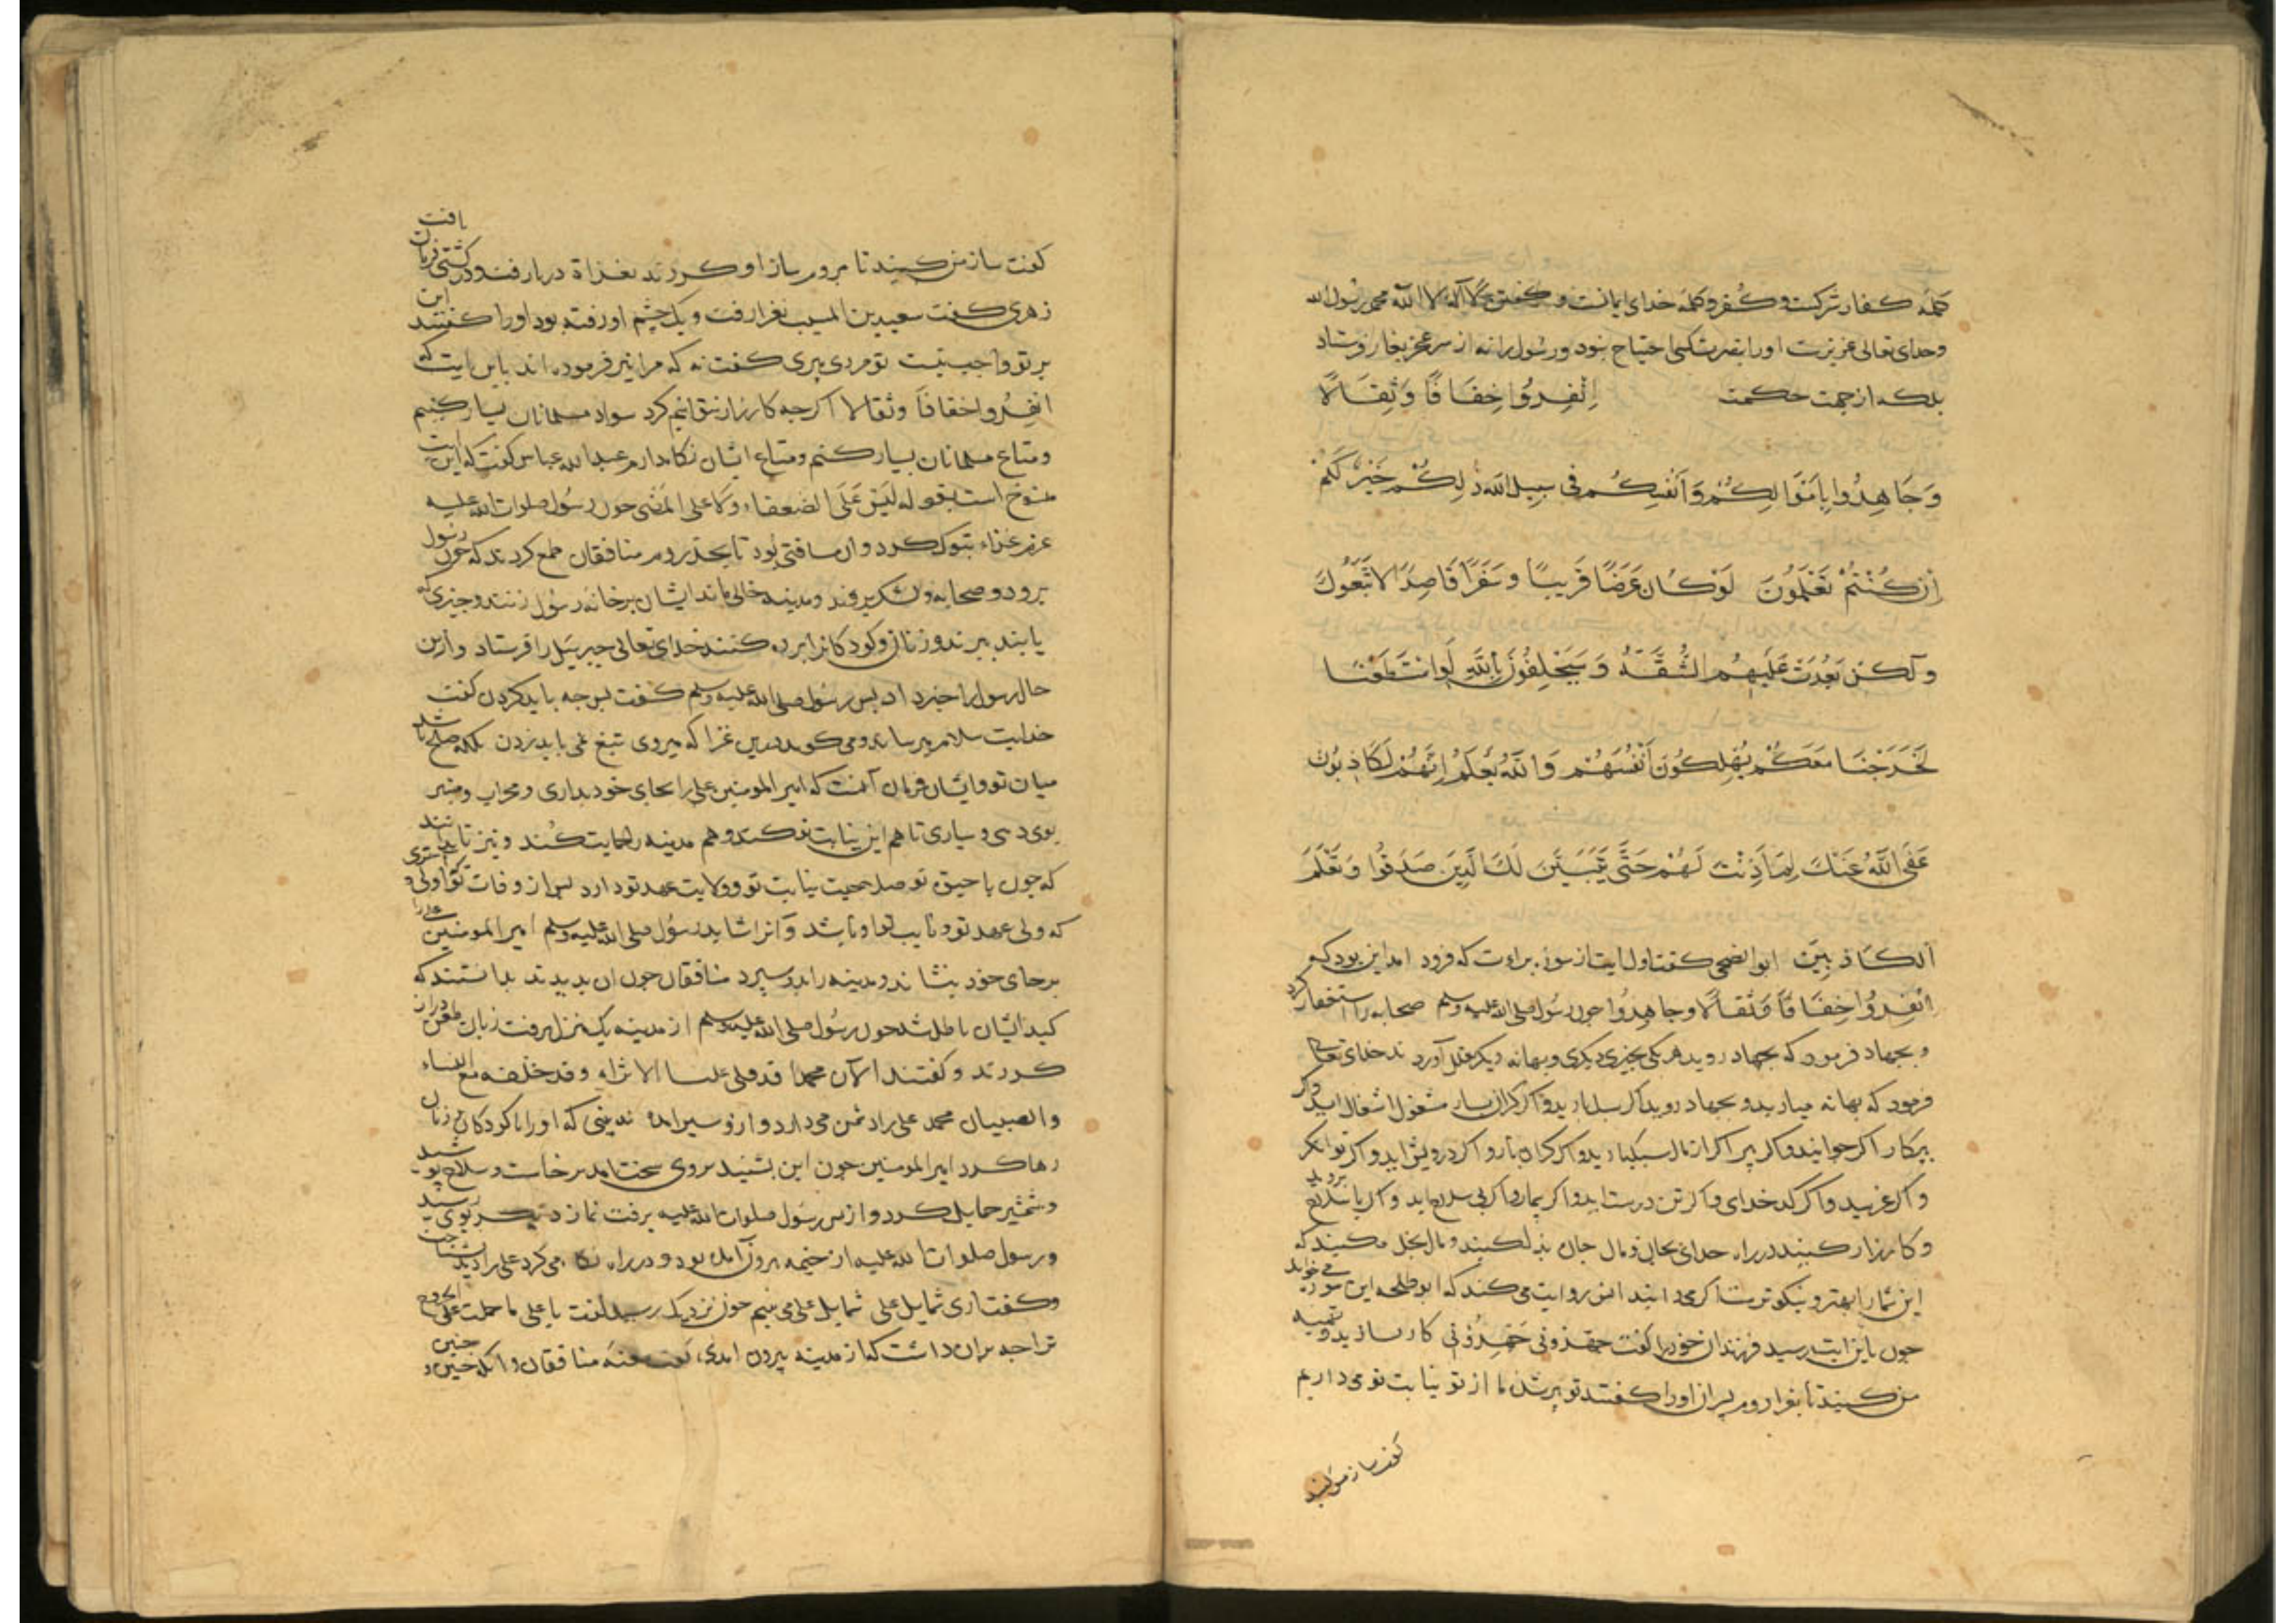 کلمه کفار شرکست و کفر و کلمه خدای ایمانست و گفتن لا اله الا الله محمد رسول الله
و خدای تعالی عزیزست او را بنصرت کسی احتیاج نبود و رسول را نه از سر عجز بغار فرستاد
بلکه از جهت حکمت اِنْفِرُوا خِفَافًا وَثِقَالًا
وَجَاهِدُوا بِاَمْوَالِكُمْ وَاَنْفُسِكُمْ فی سَبِیلِ اللّهِ ذٰلِكُمْ خَیْرٌ لَكُمْ
اِنْ كُنْتُمْ تَعْلَمُونَ لَوْكَانَ عَرَضًا قَرِیبًا وَسَفَرًا قَاصِدًا لَاتَّبَعُوكَ
وَلَكِنْ بَعُدَتْ عَلَیْهِمُ الشُّقَّةُ وَسَیَحْلِفُونَ بِاللّهِ لَوِاسْتَطَعْنَا
لَخَرَجْنَا مَعَكُمْ یُهْلِكُونَ اَنْفُسَهُمْ وَاللّهُ یَعْلَمُ اِنَّهُمْ لَكَاذِبُونَ
عَفَی اللّهُ عَنْكَ لِمَ اَذِنْتَ لَهُمْ حَتَّی یَتَبَیَّنَ لَكَ الَّذِینَ صَدَقُوا وَتَعْلَمَ
الْكَاذِبِینَ ابو الضحی گفت اول ایت از سوره براءت که فرود امد این بود که
اِنْفِرُوا خِفَافًا وَثِقَالًا وجاهِدُوا چون رسول صلی الله علیه وسلم صحابه را استنفار کرد
و بجهاد فرمود که بجهاد روید هر یکی بچیزی دیگری و بهانه دیگر تعلل آوردند خدای تعالی
فرمود که بهانه میارید و بجهاد روید اگر سبکبارید و اگر گران بار مشغول اشغال اید و اگر
بیکار اگر جوانید و اگر پیر اگر از مال سبکبارید و اگر گران بار و اگر درویش اید و اگر توانگر
و اگر غریبید و اگر کدخدای و اگر تن درست اید و اگر بیمار و اگر بی سلاح اید و اگر با سلاح بروید
و کارزار کنید در راه خدای بجان و مال جان بذل کنید و مال بخل مکنید که
این شما را بهتر و نیکوترست اگر می دانید انس روایت می کند که ابو طلحه این سوره می خواند
چون باین ایت رسید فرزندان خود را گفت جهزونی جَهِّزُونی کار سازید و تعبیه
من کنید تا بغزا روم پسران او را گفتند تو پیر شدی ما از تو نیابت تو می داریم
گفت ساز من کنید
گفت ساز من کنید تا بروم ساز او کردند بغزاة دریا رفت و در کشتی فرمان یافت
زهری گفت سعید بن المسیب بغزا رفت و یک چشم او رفته بود او را گفتند این
بر تو واجب نیست تو مردی پیری گفت نه که مرا نیز فرموده اند باین ایت که
انفِرُوا خفافًا وثقالا اگر چه کارزار نتوانم کرد سواد مسلمانان بسیار کنیم
و متاع مسلمانان بسیار کنم و متاع ایشان نگاه دارم عبد الله عباس گفت که این ایت
منسوخ است بقوله لَیْسَ عَلَی الضعفاء ولا علی المرضی چون رسول صلوات الله علیه
عزم غزاء تبوک کرد و ان مسافتی بود تا بحد روم منافقان طمع کردند که چون رسول
برود و صحابه و لشکر بروند و مدینه خالی ماند ایشان بر خانه رسول زنند و چیزی که
یابند ببرند و زنان و کودکان را برده کنند خدای تعالی جبرئیل را فرستاد و ازین
حال رسول را خبر داد پس رسول صلی الله علیه وسلم گفت پس چه باید کردن گفت
خدایت سلام می رساند و می گوید درین غزا که میروی تیغ نمی باید زدن بلکه صلح باشد
میان تو و ایشان فرمان آنست که امیر المومنین علی را بجای خود بداری و محراب و منبر
بوی دهی و سپاری تا هم این نیابت تو کند و هم مدینه را حمایت کند و نیز تا بدانند
که چون با حیوة تو صلاحیت نیابت تو و ولایت عهد تو دارد پس از وفات تو اولی و احری
که ولی عهد تو و نایب تو او باشد و آنرا شاید رسول صلی الله علیه وسلم امیر المومنین علی را
بر جای خود بنشاند و مدینه را بدو سپرد منافقان چون ان بدیدند بدانستند که
کید ایشان باطل شد چون رسول صلی الله علیه وسلم از مدینه یک منزل برفت زبان طعن دراز
کردند و گفتند الآن محمدا قد قلی علیا الا تراه وقد خلفه مع النساء
والصبیان محمد علی را دشمن می دارد و ازو سیر امده نه بینی که او را با کودکان و زنان
رها کرد امیر المومنین چون این بشنید بروی سخت امد برخاست و سلاح پوشید
و شمشیر حمایل کرد و از پس رسول صلوات الله علیه برفت نماز دیگر بوی رسید
و رسول صلوات الله علیه از خیمه برون آمده بود و در راه نگاه می کرد علی را دید بشناخت
و گفت اری شمایل علی شمایل علی می بینم چون نزدیک رسید گفت یا علی ما حملک علی الخروج
ترا چه بران داشت که از مدینه بیرون امدی گفت طعنه منافقان و انکه چنین و چنین